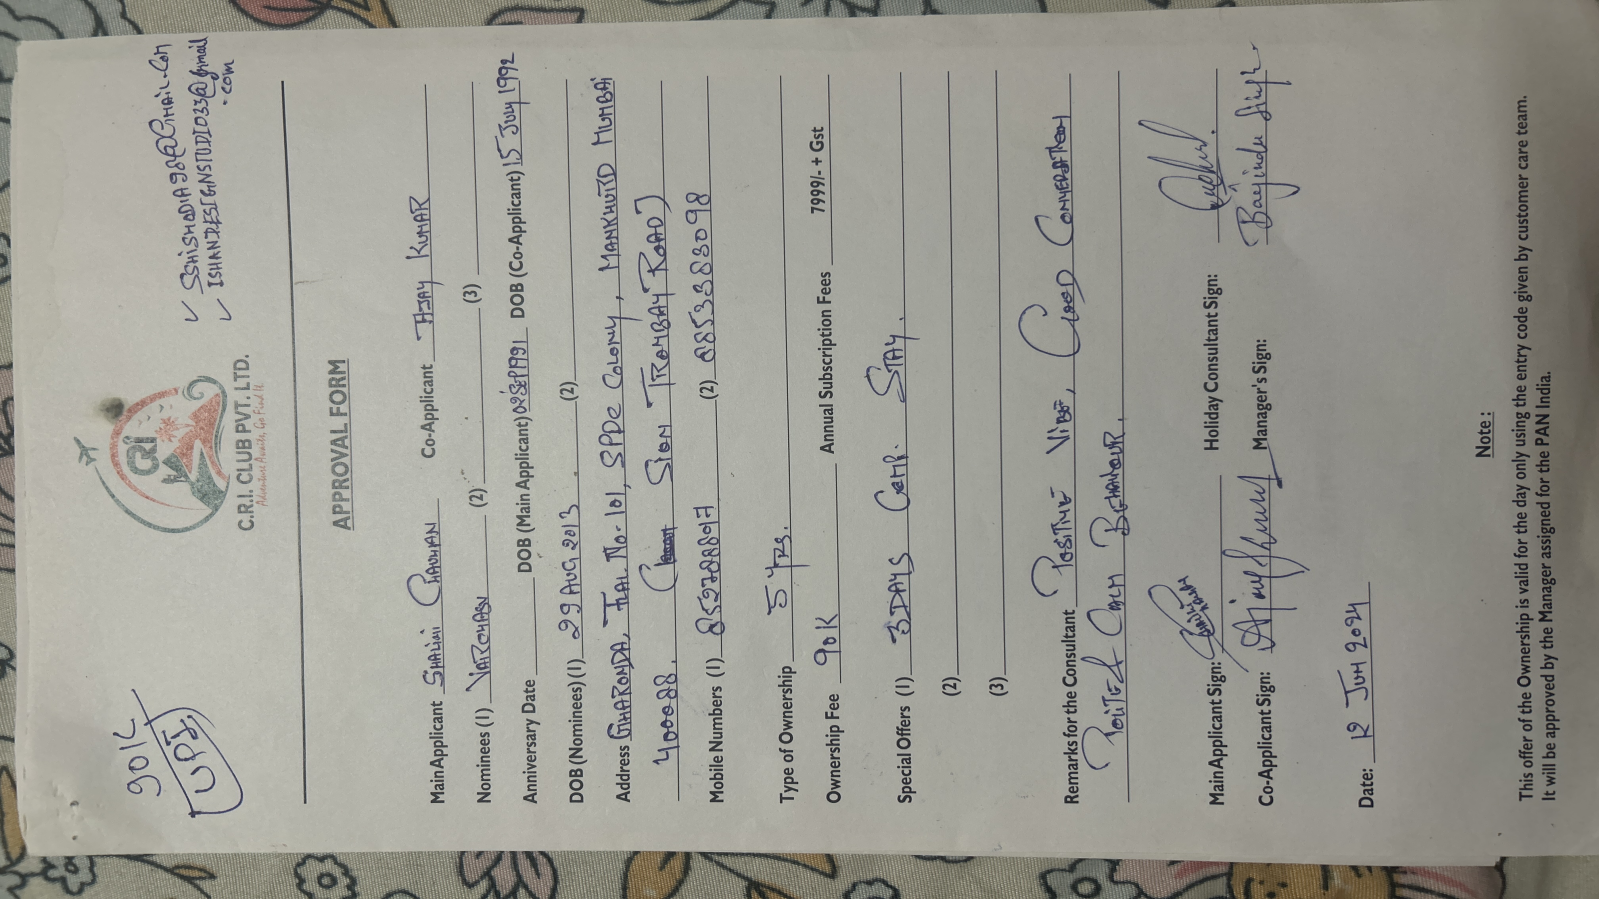 90K
UPI
✓ SSHISHODIA98@GMAIL.COM
✓ ISHANDESIGNSTUDIO33@gmail
.com
CRI
C.R.I. CLUB PVT. LTD.
Adventure Awaits, Go Find It
APPROVAL FORM
Main Applicant SHALINI CHAUHAN Co-Applicant AJAY KUMAR
Nominees (1) (2) (3)
Anniversary Date DOB (Main Applicant) 02 SEP 1991 DOB (Co-Applicant) 15 JULY 1992
DOB (Nominees) (1) 29 AUG 2013 (2)
Address GHARONDA, FLAT NO-101, SPDC COLONY, MANKHURD MUMBAI
400088. SION TROMBAY ROAD)
Mobile Numbers (1) 8527288917 (2) 8853883098
Type of Ownership 5 yrs.
Ownership Fee 90K Annual Subscription Fees 7999/- + Gst
Special Offers (1) 3 DAYS COMP. STAY.
(2)
(3)
Remarks for the Consultant POSITIVE VIBE, GOOD CONVERSATION
POLITE & CALM BEHAVIOUR.
Main Applicant Sign: Holiday Consultant Sign:
Co-Applicant Sign: Ajay Kumar Manager's Sign: Bajinder Singh
Date: 12 JUN 2024
Note :
This offer of the Ownership is valid for the day only using the entry code given by customer care team.
It will be approved by the Manager assigned for the PAN India.